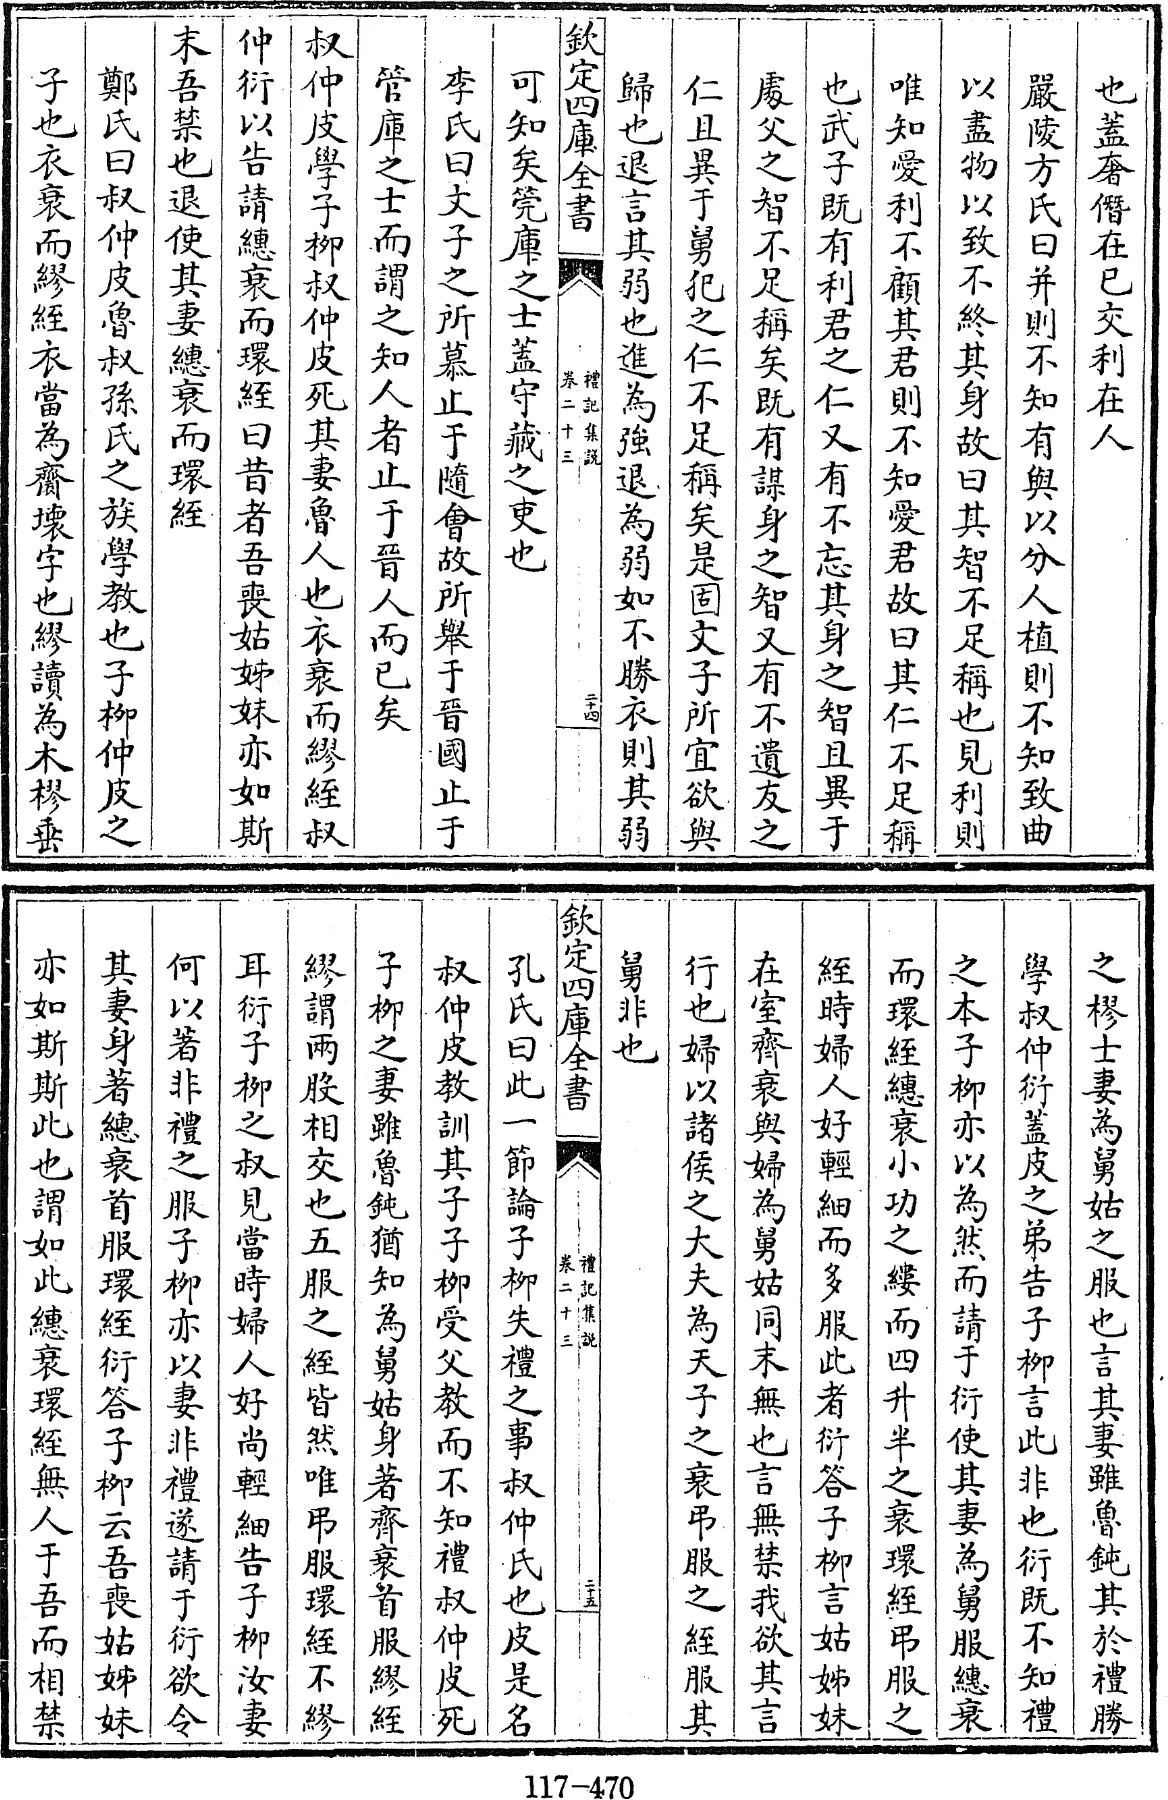 也蓋奢僭在已交利在人
嚴陵方氏曰并則不知有與以分人植則不知致曲
以盡物以致不終其身故曰其智不足稱也見利則
唯知愛利不顧其君則不知愛君故曰其仁不足稱
也武子既有利君之仁又有不忘其身之智且異于
處父之智不足稱矣既有謀身之智又有不遺友之
仁且異于舅犯之仁不足稱矣是固文子所宜欲與
歸也退言其弱也進為強退為弱如不勝衣則其弱
欽定四庫全書
禮記集說
卷二十三
二十四
可知矣筦庫之士蓋守藏之吏也
李氏曰文子之所慕止于隨會故所舉于晉國止于
管庫之士而謂之知人者止于晉人而已矣
叔仲皮學子栁叔仲皮死其妻魯人也衣衰而繆絰叔
仲衍以告請繐衰而環絰曰昔者吾喪姑姊妹亦如斯
末吾禁也退使其妻繐衰而環絰
鄭氏曰叔仲皮魯叔孫氏之族學教也子栁仲皮之
子也衣衰而繆絰衣當為齋壞字也繆讀為木樛垂
之樛士妻為舅姑之服也言其妻雖魯鈍其於禮勝
學叔仲衍蓋皮之弟告子栁言此非也衍既不知禮
之本子栁亦以為然而請于衍使其妻為舅服繐衰
而環絰繐衰小功之縷而四升半之衰環絰弔服之
絰時婦人好輕細而多服此者衍答子栁言姑姊妹
在室齊衰與婦為舅姑同末無也言無禁我欲其言
行也婦以諸侯之大夫為天子之衰弔服之絰服其
舅非也
欽定四庫全書
禮記集說
卷二十三
二十五
孔氏曰此一節論子栁失禮之事叔仲氏也皮是名
叔仲皮教訓其子子栁受父教而不知禮叔仲皮死
子栁之妻雖魯鈍猶知為舅姑身著齊衰首服繆絰
繆謂兩股相交也五服之絰皆然唯弔服環絰不繆
耳衍子栁之叔見當時婦人好尚輕細告子栁汝妻
何以著非禮之服子栁亦以妻非禮遂請于衍欲令
其妻身著繐衰首服環絰衍答子栁云吾喪姑姊妹
亦如斯斯此也謂如此繐衰環絰無人于吾而相禁
117-470